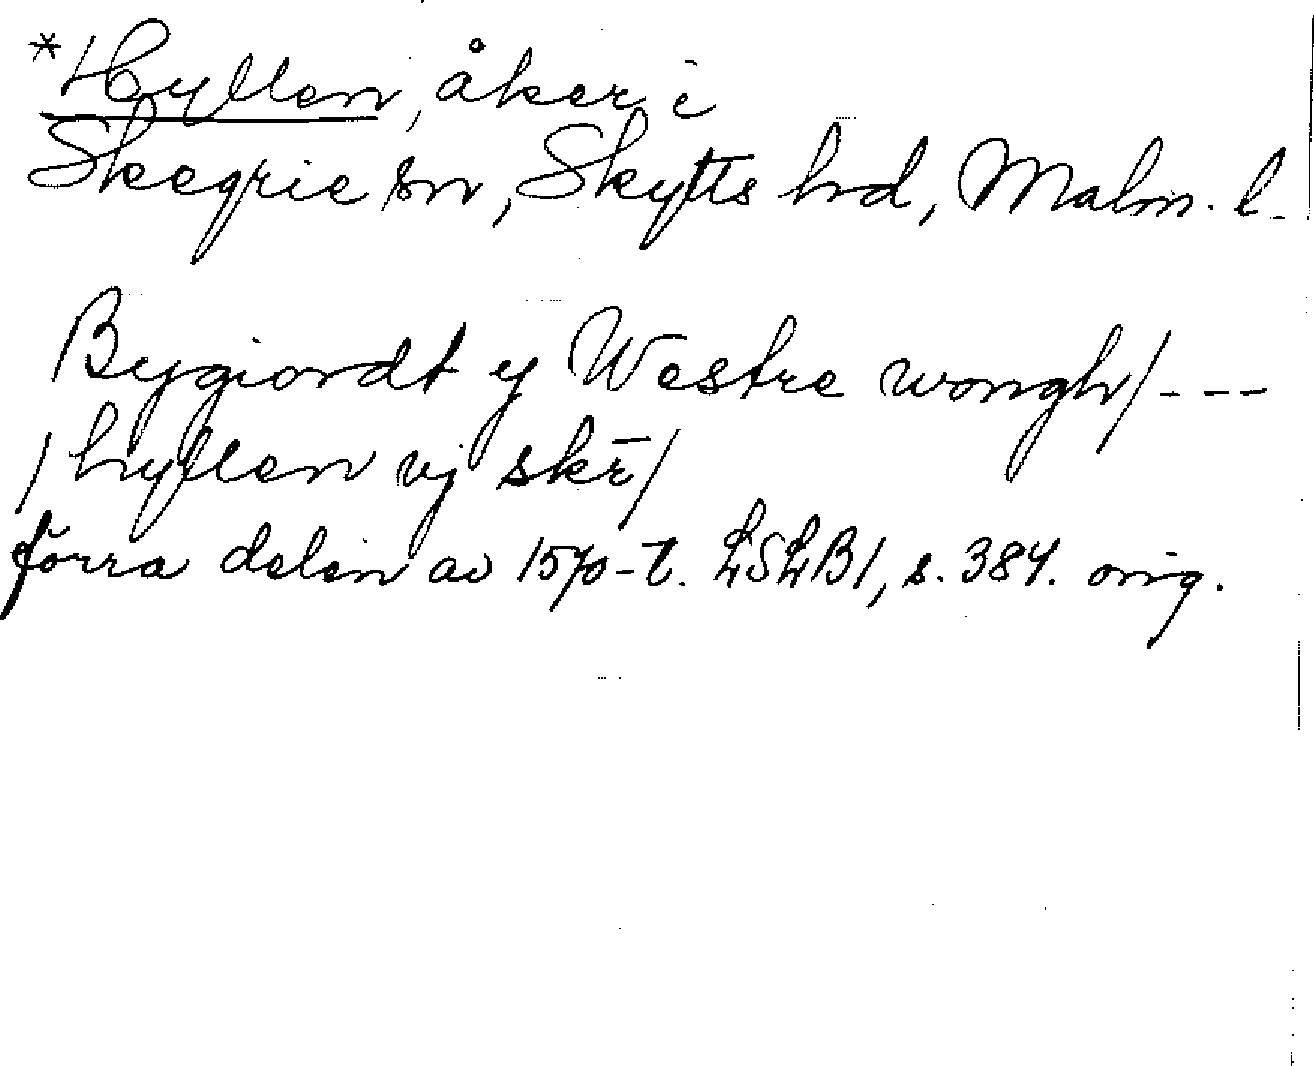 *Hyllen, åker i
Skegrie sn, Skytts hd, Malm. l.
Bygiordt y Westre wongh/---
/hyllen vj skē/
förra delen av 1570-t. LSLB1, s. 384. orig.